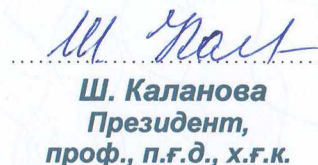 Ш. Каланова
Президент,
проф., п.ғ.д., х.ғ.к.